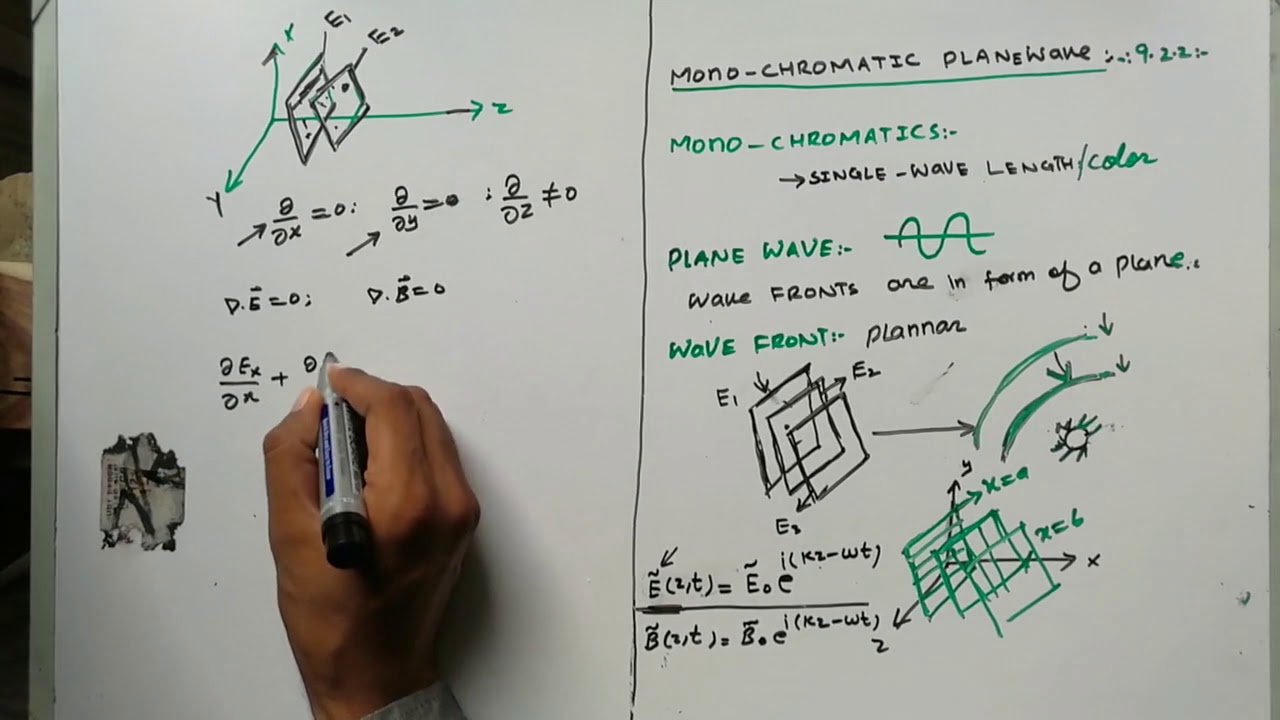 E1
E2
X
Z
Y
∂/∂x = 0; ∂/∂y = 0 ; ∂/∂z ≠ 0
∇.E⃗ = 0; ∇.B⃗ = 0
∂Ex/∂x + ∂
MONO-CHROMATIC PLANEWAVE :-: 9.2.2:-
MONO-CHROMATICS:-
→ SINGLE-WAVE LENGTH/color
PLANE WAVE:-
Wave FRONTS are in form of a plane.
WAVE FRONT:- plannar
E1
E2
E3
y
x=a
x=b
x
z
Ẽ(z,t) = Ẽ₀ e^i(kz-wt)
B̃(z,t) = B̃₀ e^i(kz-wt)